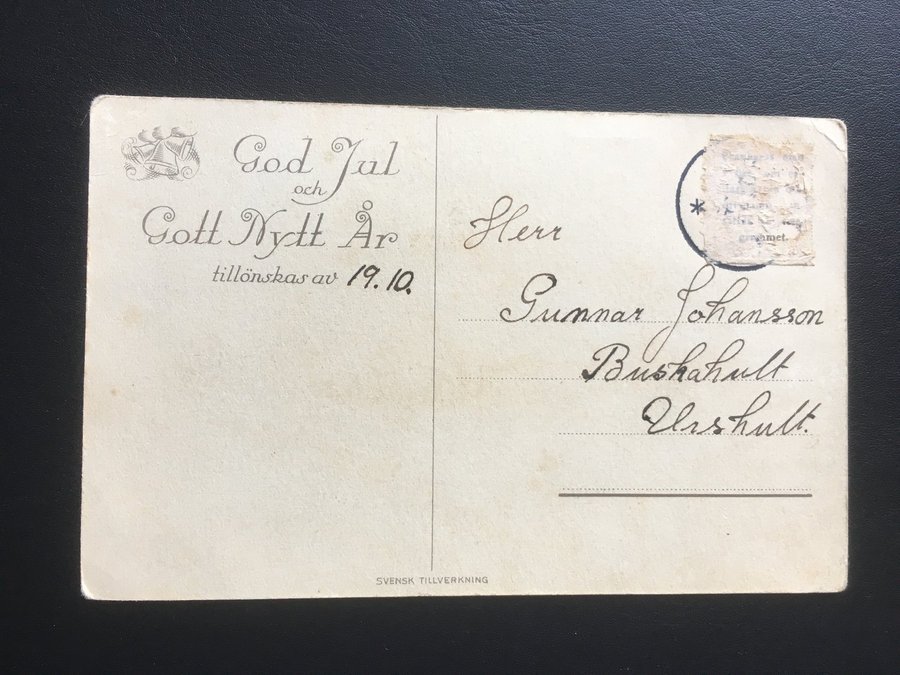 God Jul
och
Gott Nytt År
tillönskas av 19.10.
Herr
Gunnar Johansson
Buskahult
Urshult.
SVENSK TILLVERKNING